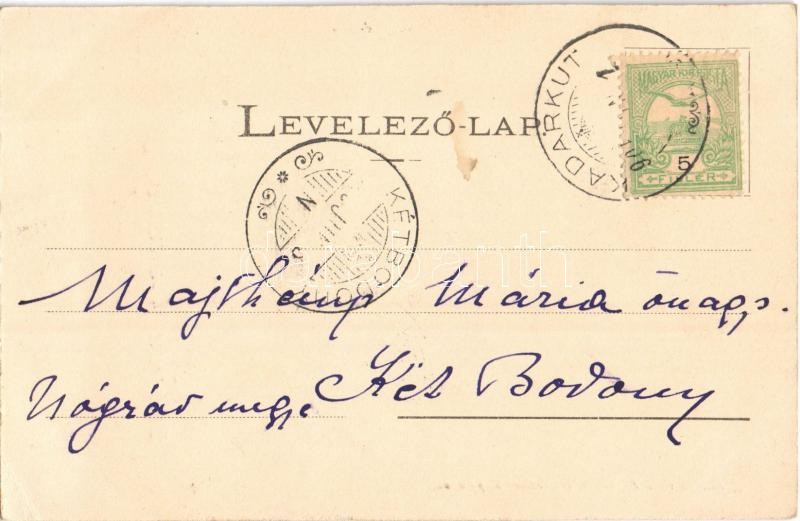 LEVELEZŐ-LAP
KADARKUT
MAGYAR KIR. POSTA
5
FILLÉR
KÉTBODONY
N
darabanth
Majthényi Mária őnags.
Nógrád megye Két Bodony